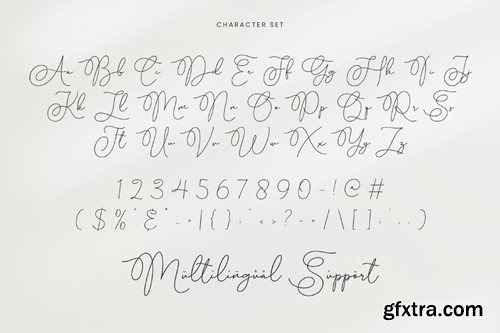 CHARACTER SET
Aa Bb Cc Dd Ee Ff Gg Hh Ii Jj
Kk Ll Mm Nn Oo Pp Qq Rr Ss
Tt Uu Vv Ww Xx Yy Zz
1 2 3 4 5 6 7 8 9 0 - ! @ #
( $ % ^ & * _ - + | { } : " < > ? - = / \ [ ] ; ' , . )
Mültilingüäl Süppört
gfxtra.com